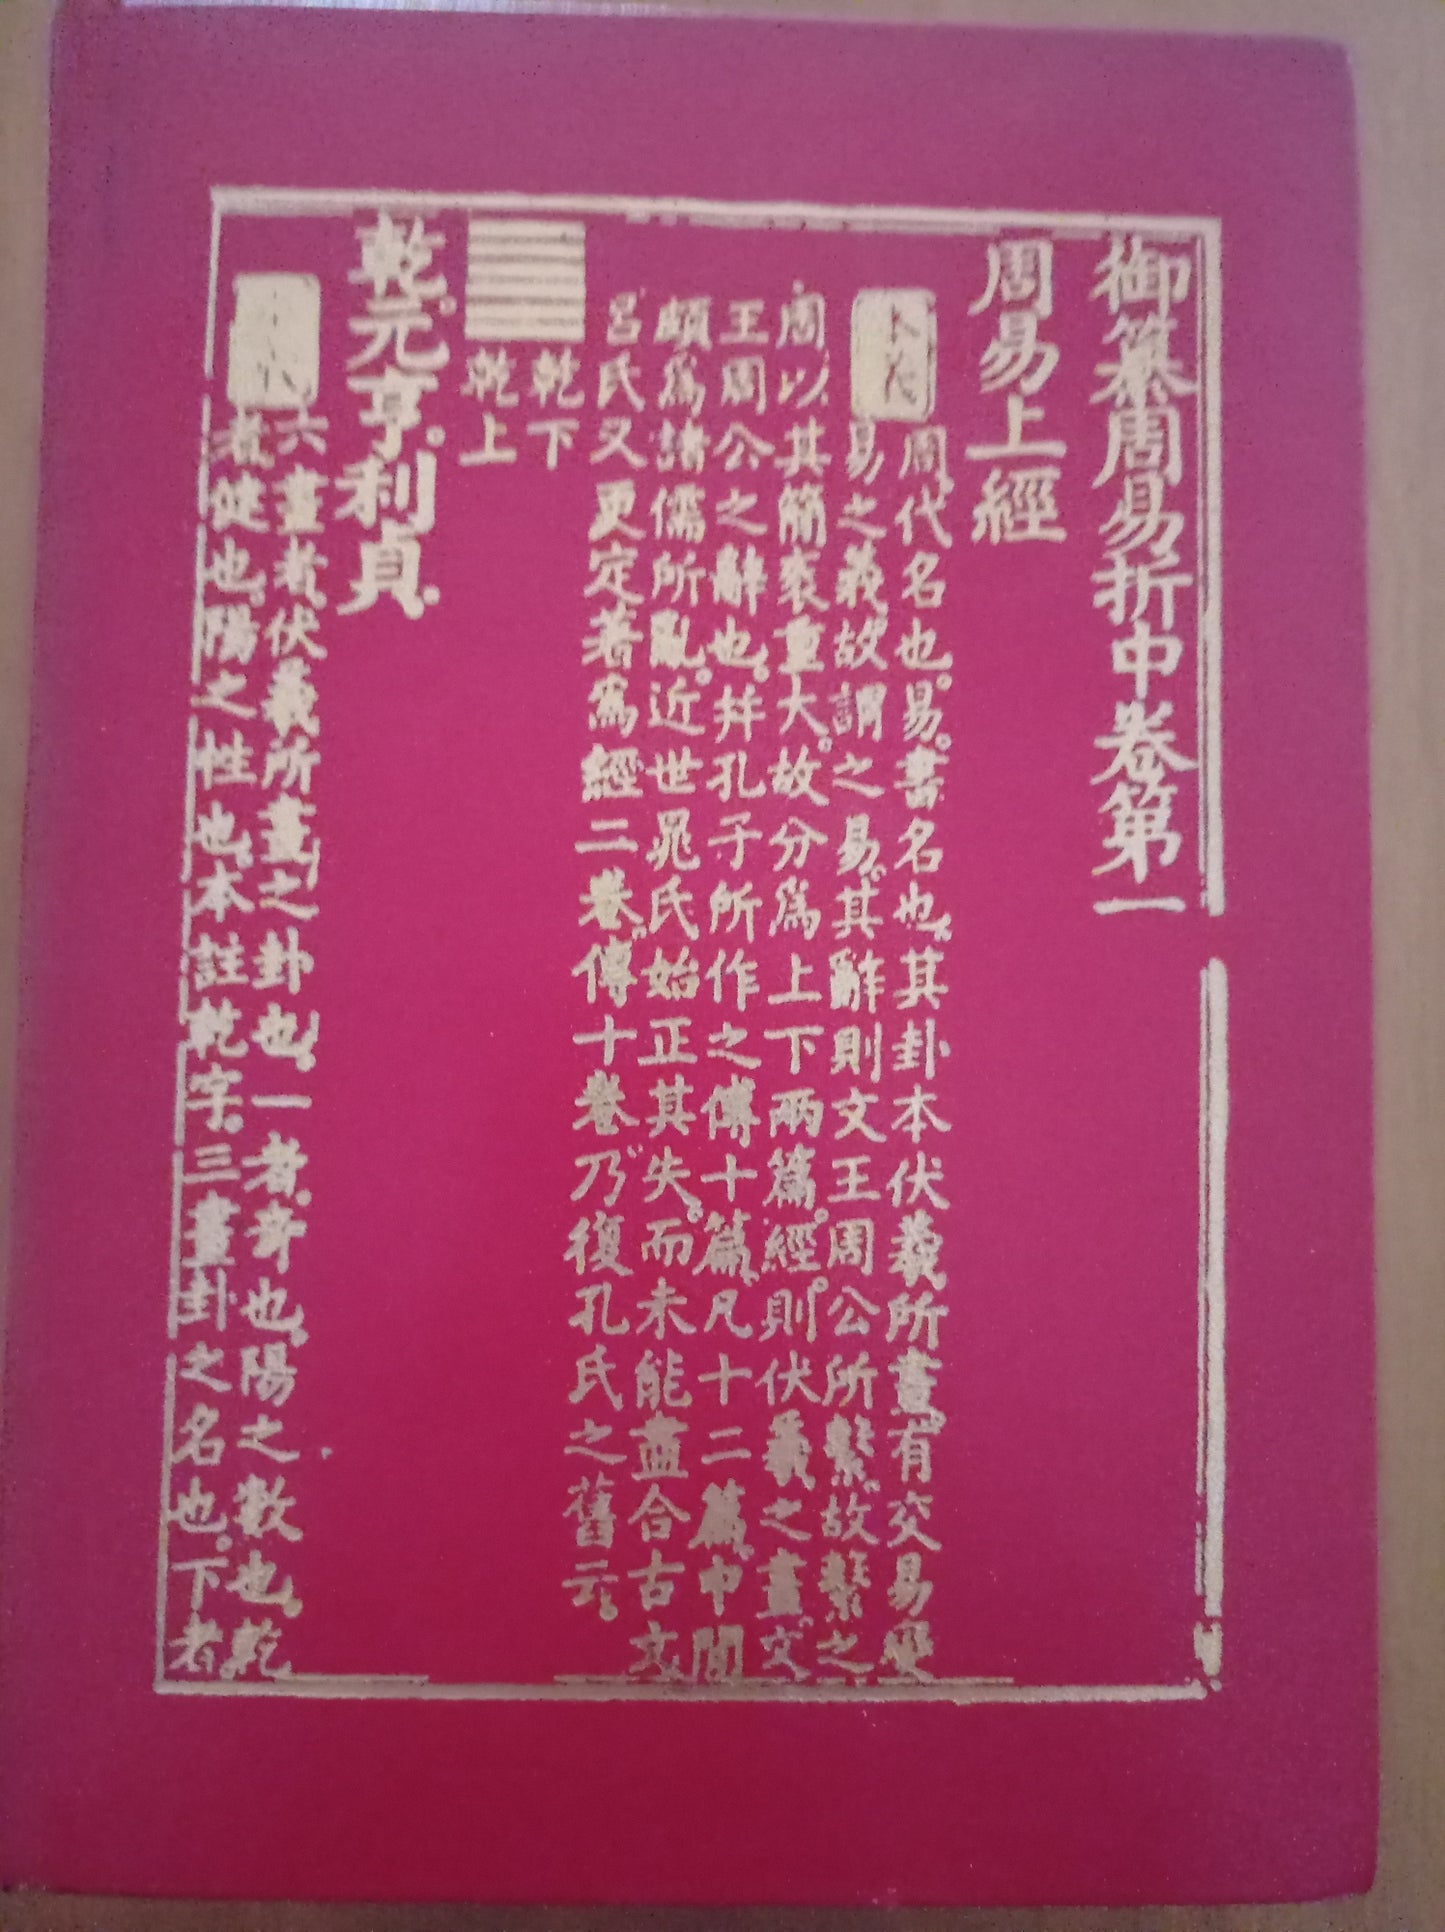 御纂周易折中卷第一
周易上經
周代名也。易書名也。其卦本伏羲所畫。有交易變
易之義。故謂之易。其辭則文王周公所繫。故繫之
周。以其簡袠重大。故分爲上下兩篇。經。則伏羲之畫。文
王周公之辭也。并孔子所作之傳十篇。凡十二篇。中閒
頗爲諸儒所亂。近世晁氏始正其失。而未能盡合古文。
呂氏又更定著爲經二卷。傳十卷。乃復孔氏之舊云。
乾下
乾上
乾。元亨。利貞。
六畫者。伏羲所畫之卦也。一者。奇也。陽之數也。乾
者。健也。陽之性也。本註乾字。三畫卦之名也。下者。